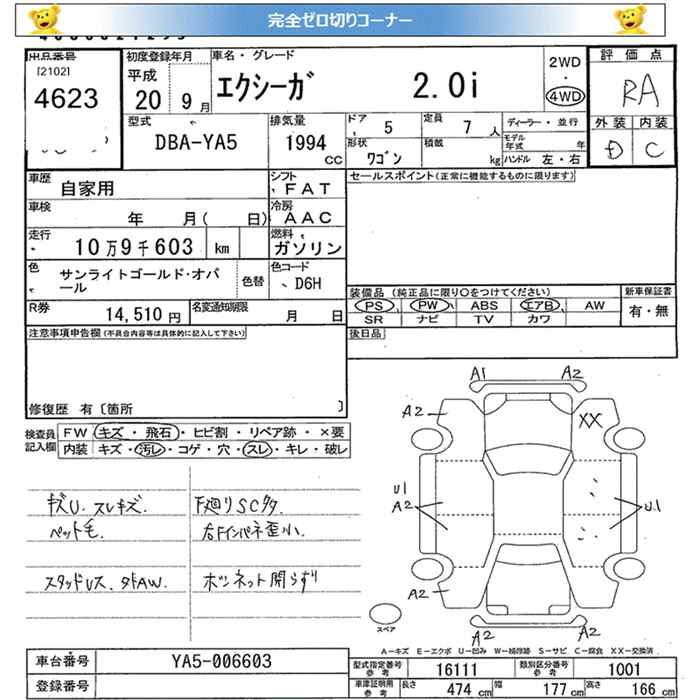 完全ゼロ切りコーナー
出品番号
[2102]
4623
初度登録年月
平成
20 9月
車名・グレード
エクシーガ 2.0i
2WD
・
4WD
評価点
RA
外装 内装
D C
型式
DBA-YA5
排気量
1994
cc
ドア
5
定員
7人
ディーラー・並行
形状
ワゴン
積載
kg
モデル年式 年
ハンドル 左・右
車歴
自家用
シフト
FAT
セールスポイント(正常に機能するものに限ります)
車検
年 月( 日)
冷房
AAC
走行
10万9千603 km
燃料
ガソリン
色
サンライトゴールド・オパール
色替
色コード
D6H
装備品(純正品に限り○をつけてください)
新車保証書
PS PW ABS エアB AW
有・無
SR ナビ TV カワ
R券
14,510円
名変通知期限
月 日
後日品
注意事項申告欄(不具合内容等は具体的に記入して下さい)
修復歴 有〔箇所 〕
検査員記入欄
FW キズ・飛石・ヒビ割・リペア跡・×要
内装 キズ・汚レ・コゲ・穴・スレ・キレ・破レ
キズU.スレキズ.
ペット毛.
スタッドレス.社外AW.
下廻りSC多
右Fインパネ歪小.
ボンネット開らずり
A1 A2
A2
XX
U1
A2
U.1
A2 A2
スペア
A-キズ E-エクボ U-凹み W-補修跡 S-サビ C-腐食 XX-交換済
車台番号
YA5-006603
登録番号
型式指定番号
参考
16111
類別区分番号
参考
1001
車庫証明用
参考
長さ 474cm
幅 177cm
高さ 166cm